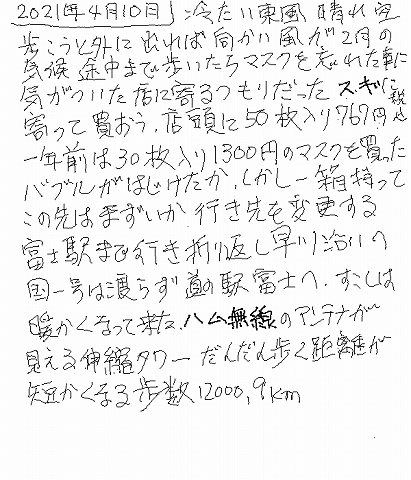 2021年4月10日 冷たい東風 晴れ 空
歩こうと外に出れば向かい風が2月の
気候 途中まで歩いたらマスクを忘れた事に
気がついた店に寄るつもりだった スギに
寄って買おう、店頭に50枚入り767円 税込
一年前は30枚入り1300円のマスクを買った
バブルがはじけたか、しかし一箱持って
この先はまずいか 行き先を変更する
富士駅まで行き折り返し早川沿いの
国一号は渡らず道の駅富士へ、すこしは
暖かくなって来た、ハム無線のアンテナが
見える伸縮タワー だんだん歩く距離が
短かくなる歩数12000,9km